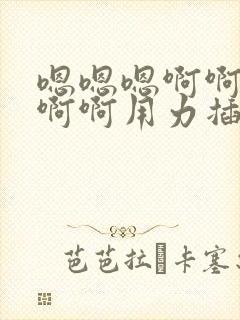 嗯嗯嗯啊啊
啊啊用力插
芭芭拉·卡塞